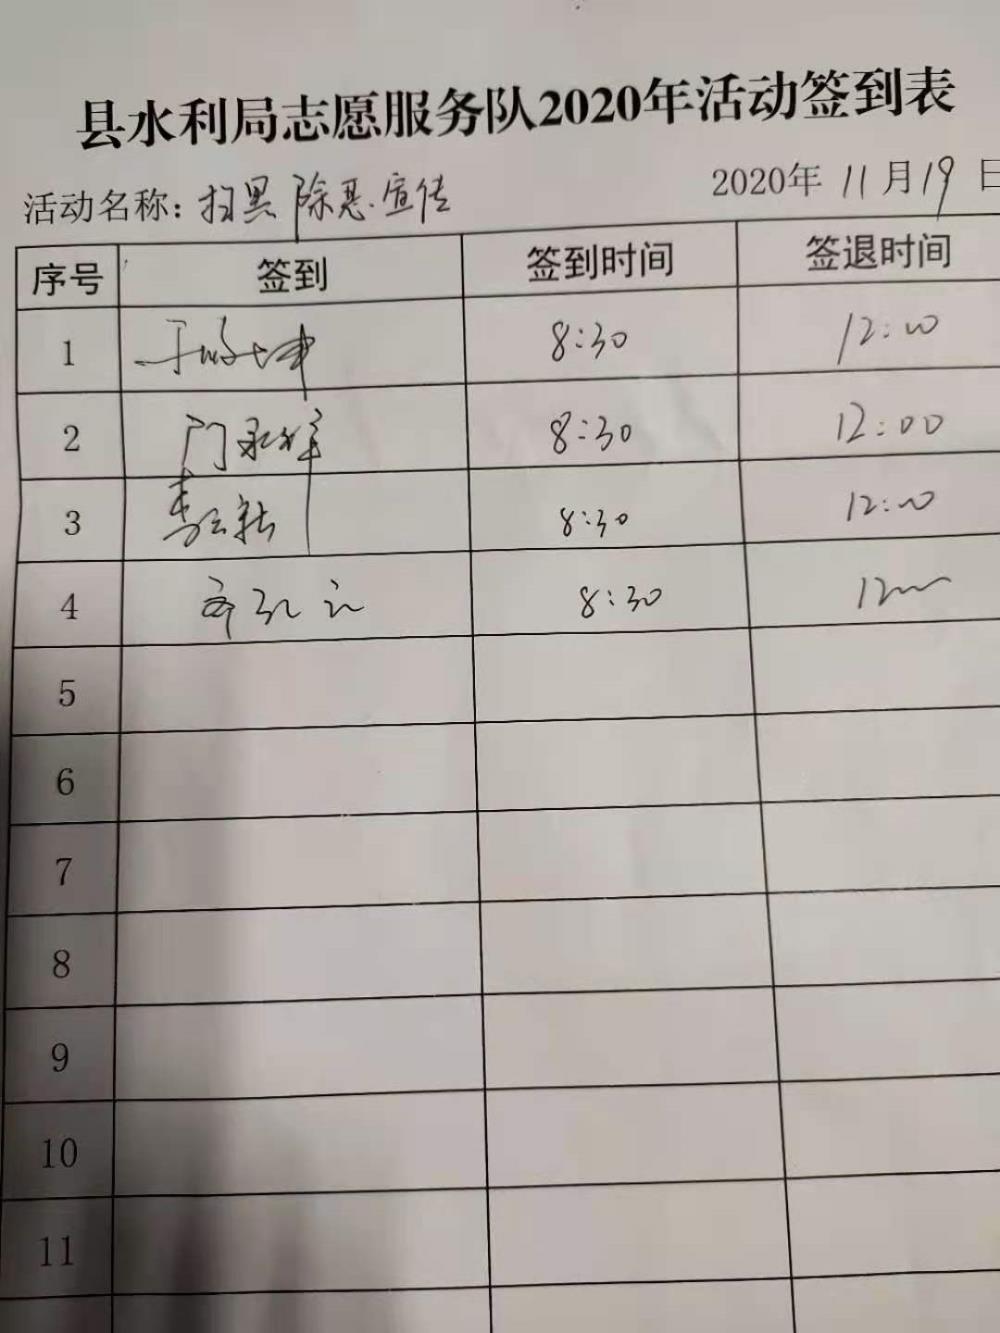 县水利局志愿服务队2020年活动签到表
活动名称：扫黑除恶宣传 2020年11月19日
序号 签到 签到时间 签退时间
1 8:30 12:00
2 门永祥 8:30 12:00
3 8:30 12:00
4 8:30 12:00
5
6
7
8
9
10
11